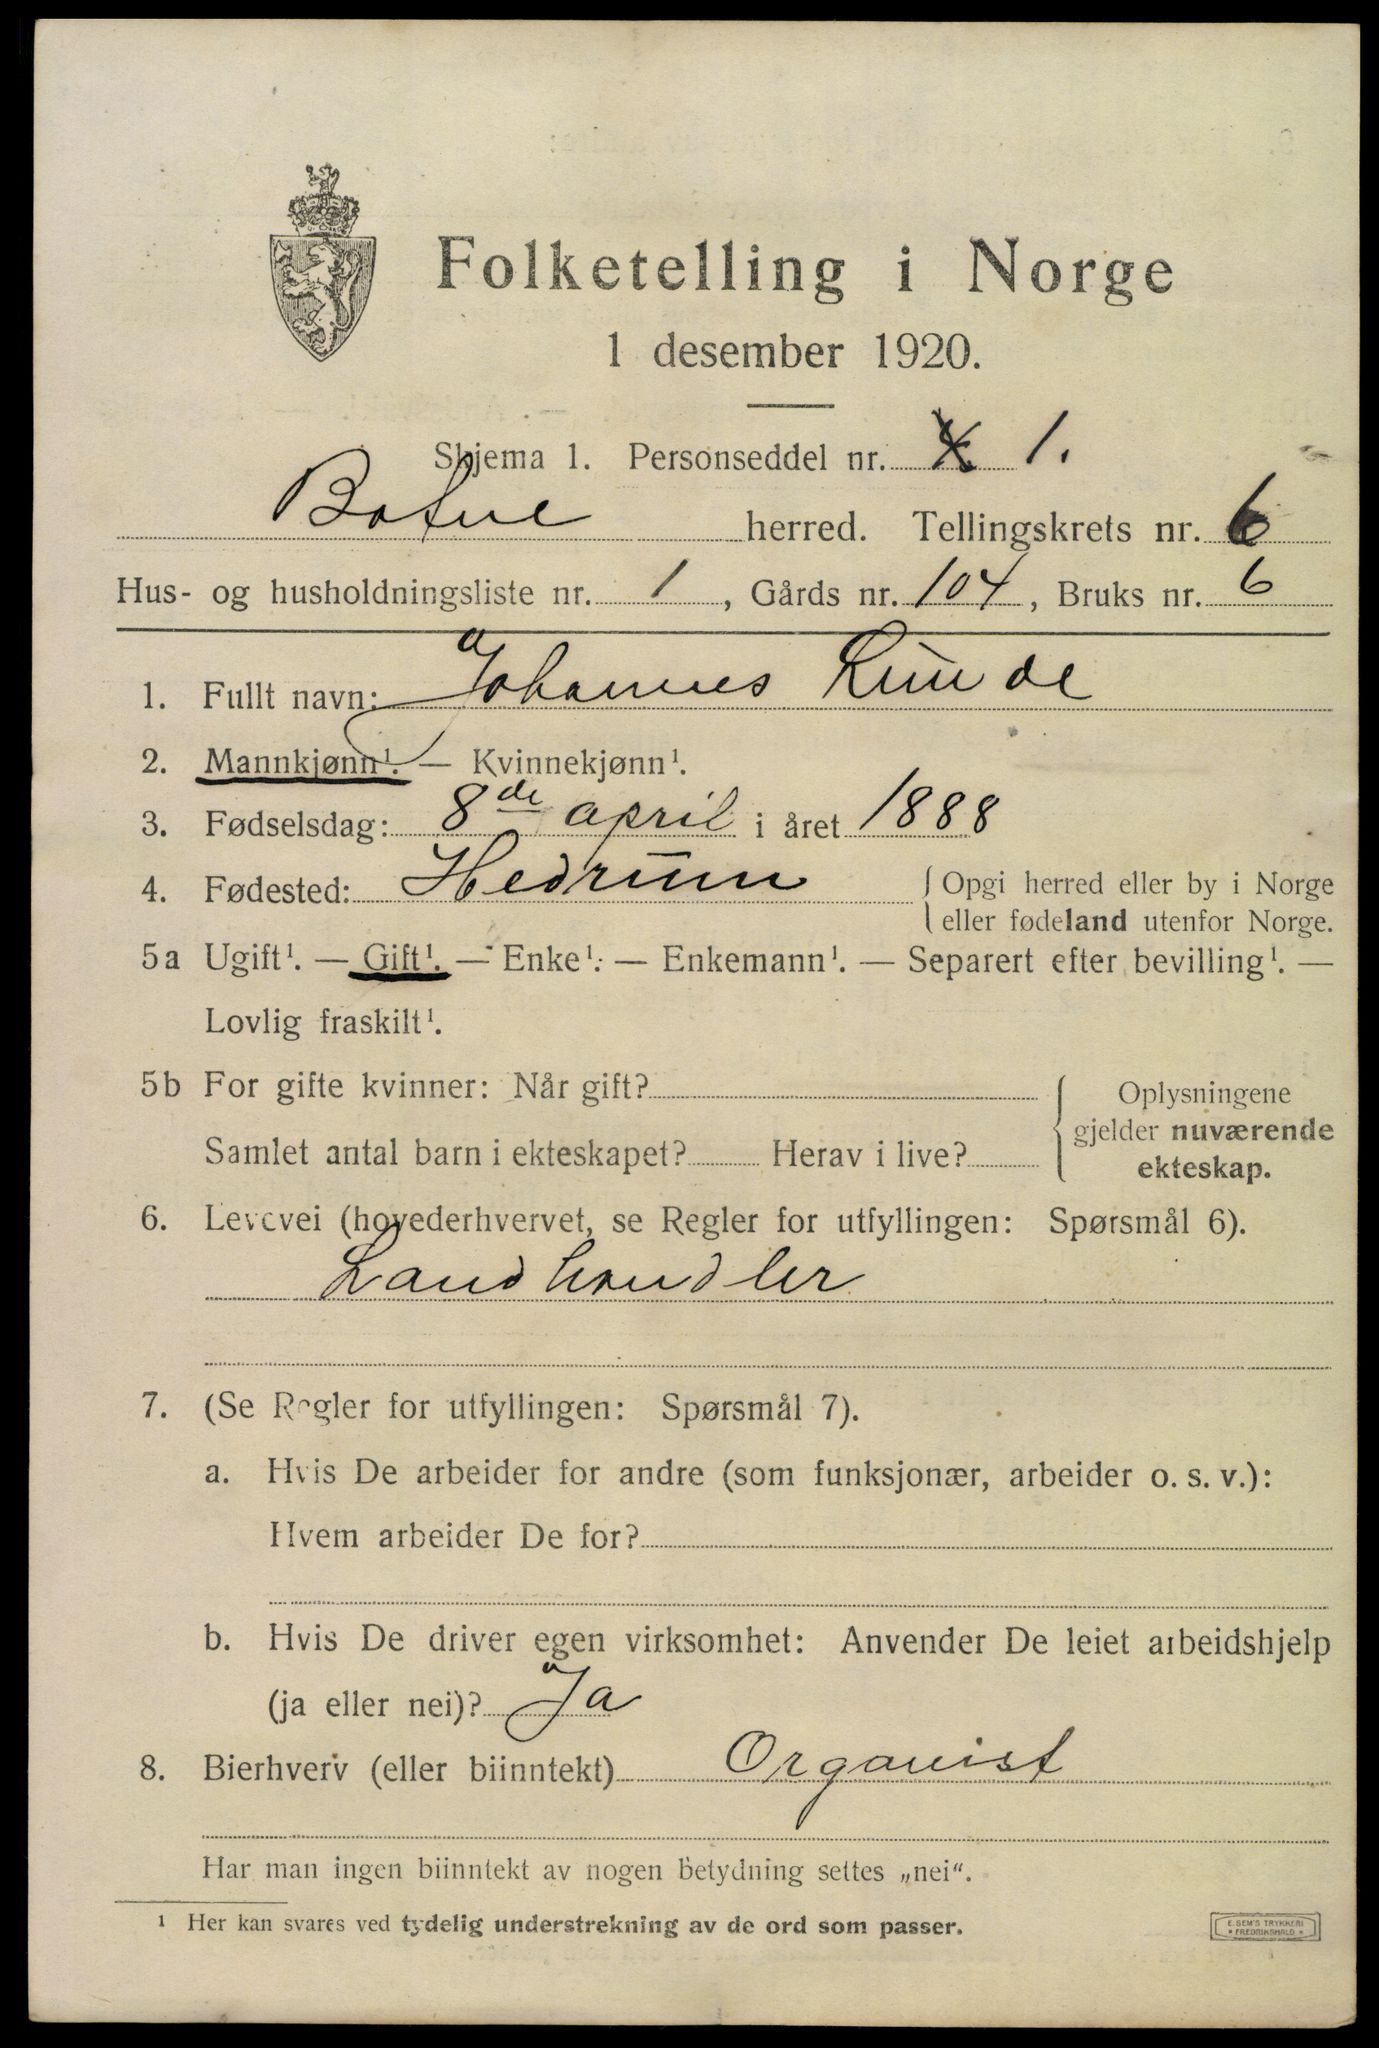 Folketelling i Norge
1 desember 1920.
Skjema 1. Personseddel nr. 1.
Botne herred. Tellingskrets nr. 6
Hus- og husholdningsliste nr. 1, Gårds nr. 104, Bruks nr. 6
1. Fullt navn: Johannes Runde
2. Mannkjønn¹. — Kvinnekjønn¹.
3. Fødselsdag: 8de april i året 1888
4. Fødested: Hedrum { Opgi herred eller by i Norge
eller fødeland utenfor Norge.
5a Ugift¹. — Gift¹. — Enke¹. — Enkemann¹. — Separert efter bevilling¹. —
Lovlig fraskilt¹.
5b For gifte kvinner: Når gift? { Oplysningene
gjelder nuværende
Samlet antal barn i ekteskapet? Herav i live? ekteskap.
6. Levevei (hovederhvervet, se Regler for utfyllingen: Spørsmål 6).
Landhandler
7. (Se Regler for utfyllingen: Spørsmål 7).
a. Hvis De arbeider for andre (som funksjonær, arbeider o. s. v.):
Hvem arbeider De for?
b. Hvis De driver egen virksomhet: Anvender De leiet arbeidshjelp
(ja eller nei)? Ja
8. Bierhverv (eller biinntekt) Organist
Har man ingen biinntekt av nogen betydning settes „nei“.
¹ Her kan svares ved tydelig understrekning av de ord som passer.
E. SEM'S TRYKKERI
* FREDRIKSHALD *